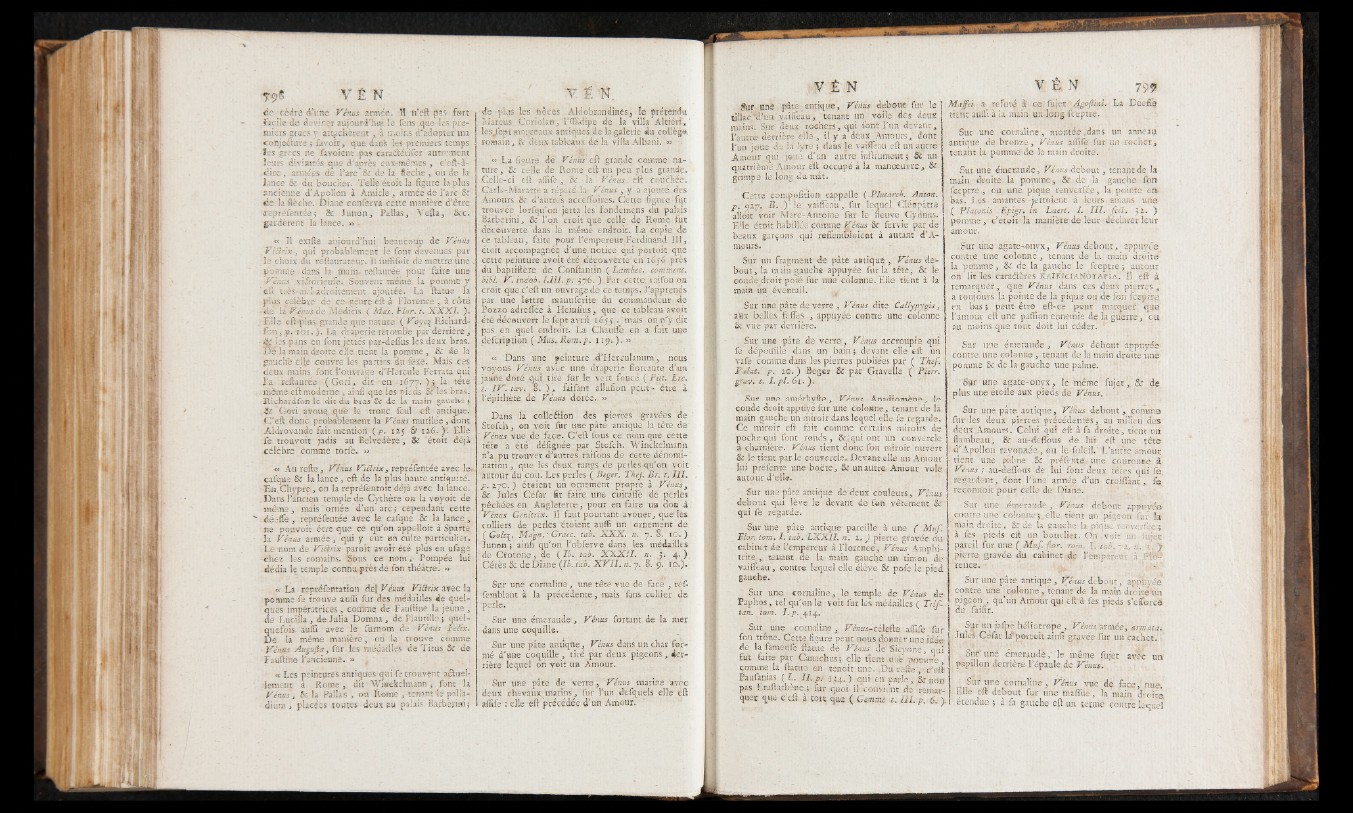 798 VÉN
de cèdre d'une Vénus armée. Il n'est pas fort
facile de deviner aujourd'hui le sens que les pre-
miers grecs y attachèrent, à moins d'adopter ma
conjecture ; savoir, que dans les premiers temps
les grecs ne savoient pas caractériser autrement
leurs divinités que d'après eux-mêmes, c'est-à-
dire, armées de l'arc & de la flèche, ou de la
lance & du bouclier. Telle étoit la figure la plus
ancienne d'Apollon à Amicle, armée de l'arc &
de la flèche. Diane conserva cette manière d'être
représentée ; & Junon, Pallas, Vesta, &c.
gardèrent la lance. »
« Il existe aujourd'hui beaucoup de Vénus
Victrix, qui probablement le sont devenues par
le choix du restaurateur. Il suffisoit de mettre une
pomme dans la main restaurée pour faire une
Vénus victorieuse. Souvent même la pomme y
est très-mal-adroitement ajoutée. La statue la
plus célèbre de ce genre est à Florence, à côté
de la Vénus de Médicis ( Mus. Flor. t. XXXI. ).
Elle est plus grande que nature ( Voyez Richard-
son, p. 101. ). La draperie retombe par derrière,
& les pans en sont jettés par-dessus les deux bras.
De la main droite elle tient la pomme, & de la
gauche elle couvre les parties du sexe. Mais ces
deux mains sont l'ouvrage d'Hercule Ferrata qui
l'a restaurée ( Gori, dit en 1677. ) ; la tête
même est moderne, ainsi que les pieds & les bras.
Richardson le dit du bras & de la main gauche ;
& Gori avoue que le tronc seul est antique.
C'est donc probablement la Vénus mutilée, dont
Aldrovande fait mention ( p. 125 & 126. ). Elle
se trouvoit jadis au Belvedère, & étoit déjà
célèbre comme torse. »
« Au reste, Vénus Victrix, représentée avec le
casque & la lance, est de la plus haute antiquité.
En Chypre, on la représentoit déjà avec la lance.
Dans l'ancien temple de Cythère on la voyoit de
même, mais ornée d'un arc ; cependant cette
déesse, représentée avec le casque & la lance,
ne pouvoit être que ce qu'on appelloit à Sparte
la Vénus armée, qui y eut un culte particulier.
Le nom de Victrix paroit avoir été plus en usage
chez les romains. Sous ce nom, Pompée lui
dédia le temple connu près de son théâtre. »
« La représentation de Vénus Victrix avec la
pomme se trouve aussi sur des médailles de quel-
ques impératrices, comme de Faustine la jeune,
de Lucilla, de Julia Domna, de Plautille ; quel-
quefois aussi avec le surnom de Vénus Felix.
De la même manière, on la trouve comme
Vénus Augusta, sur les médailles de Titus & de
Faustine l'ancienne. »
« Les peintures antiques qui se trouvent actuel-
lement à Rome, dit Winckelmann, sont la
Vénus, & la Pallas, ou Rome, tenant le palla-
dium, placées toutes deux au palais Barberini ;
VÉN
de plus les nôces Aldobrandines, le prétendu
Marcus Coriolan, l'Œdipe de la villa Altieri,
les sept morceaux antiques de la galerie du collège
romain, & deux tableaux de la villa Albani. »
« La figure de Vénus est grande comme na-
ture, & celle de Rome est un peu plus grande.
Celle-ci est assise, & la Vénus est couchée.
Carlo-Maratte a réparé la Vénus, y a ajouté des
Amours & d'autres accessoires. Cette figure fut
trouvée lorsqu'on jetta les fondemens du palais
Barberini, & l'on croit que celle de Rome fut
découverte dans le même endroit. La copie de
ce tableau, faite pour l'empereur Ferdinand III,
étoit accompagnée d'une notice qui portoit que
cette peinture avoit été découverte en 1656 près
du baptistère de Constantin ( Lambec. comment.
bibl. V. indob. l. III. p. 376. ) Par cette raison on
croit que c'est un ouvrage de ce temps. J'apprends
par une lettre manuscrite du commandeur de
Pozzo adressée à Heinsius, que ce tableau avoit
été découvert le sept avril 1655, mais on n'y dit
pas en quel endroit. La Chausse en a fait une
description ( Mus. Rom. p. 119. ). »
« Dans une peinture d'Herculanum, nous
voyons Vénus avec une draperie flottante d'un
jaune doré qui tire sur le vert foncé ( Pitt. Erc.
t. IV. tav. 8. ), faisant allusion peut-être à
l'épithète de Vénus dorée. »
Dans la collection des pierres gravées de
Stosch, on voit sur une pâte antique la tête de
Vénus vue de face. C'est sous ce nom que cette
tête a été désignée par Stosch. Winckelmann
n'a pu trouver d'autres raisons de cette dénomi-
nation, que les deux rangs de perles qu'on voit
autour du cou. Les perles ( Beger. Thes. Br. t. III.
p. 270. ) étoient un ornement propre à Vénus,
& Jules César fit faire une cuirasse de perles
pêchées en Angleterre, pour en faire un don à
Vénus Genitrix. Il faut pourtant avouer, que les
colliers de perles étoient aussi un ornement de
( Goltz. Magn. Graec. tab. XXX. n. 7. 8. 10. )
Junon ; ainsi qu'on l'observe dans les médailles
de Crotone, de ( Ib. tab. XXXII. n. 3. 4. )
Cérès & de Diane (Ib. tab. XVII. n. 7. 8. 9. 10.).
Sur une cornaline, une tête vue de face, res-
semblant à la précédente, mais sans collier de
perle.
Sur une émeraude, Vénus sortant de la mer
dans une coquille.
Sur une pâte antique, Vénus dans un char for-
mé d'une coquille, tiré par deux pigeons, der-
rière lequel on voit un Amour.
Sur une pâte de verre, Vénus marine avec
deux chevaux marins, sur l'un desquels elle est
assise : elle est précédée d'un Amour.
VÉN
Sur une pâte antique, Vénus debout sur le
tillac d'un vaisseau, tenant un voile des deux
mains. Sur deux rochers, qui sont l'un devant,
l'autre derrière elle, il y a deux Amours, dont
l'un joue de la lyre ; dans le vaisseau est un autre
Amour qui joue d'un autre instrument ; & un
quatrième Amour est occupé à la manœuvre, &
grimpe le long du mât.
Cette composition rappelle ( Plutarch. Anton.
p. 927. B. ) le vaisseau, sur lequel Cléopatre
alloit voir Marc-Antoine sur le fleuve Cydnus.
Elle étoit habillée comme Vénus & servie par de
beaux garçons qui ressembloient à autant d'A-
mours.
Sur un fragment de pâte antique, Vénus de-
bout, la main gauche appuyée sur la tête, & le
coude droit posé sur une colonne. Elle tient à la
main un éventail.
Sur une pâte de verre, Vénus dite Callypygis,
aux belles fesses, appuyée contre une colonne
& vue par derrière.
Sur une pâte de verre, Vénus accroupie qui
se dépouille dans un bain ; devant elle est un
vase comme dans les pierres publiées par ( Thes.
Palat. p. 20. ) Beger & par Gravelle ( Pierr.
grav. t. I. pl. 61. ).
Sur une améthyste, Vénus Anadiomène ; le
coude droit appuyé sur une colonne, tenant de la
main gauche un miroir dans lequel elle se regarde.
Ce miroir est fait comme certains miroirs de
poche qui sont ronds, & qui ont un couvercle
à charnière. Vénus tient donc son miroir ouvert
& le tient par le couvercle. Devant elle un Amour
lui présente une boëte, & un autre Amour vole
autour d'elle.
Sur une pâte antique de deux couleurs, Vénus
debout qui lève le devant de son vêtement &
qui se regarde.
Sur une pâte antique pareille à une ( Mus.
Flor. tom. I. tab. LXXII. n. 2. ) pierre gravée du
cabinet de l'empereur à Florence, Vénus Amphi-
trite, tenant de la main gauche un timon de
vaisseau, contre lequel elle élève & pose le pied
gauche.
Sur une cornaline, le temple de Vénus de
Paphos, tel qu'on le voit sur les médailles ( Tris-
tan. tom. I. p. 414.
Sur une cornaline, Vénus-céleste assise sur
son trône. Cette figure peut nous donner une idée
de la fameuse statue de Vénus de Sicyone, qui
fut faite par Canachus ; elle tient une pomme,
comme la statue en tenoit une. Du reste, c'est
Pausanias ( L. II. p. 134. ) qui en parle, & non
pas Eratosthène ; sur quoi il convient de remar-
quer que c'est à tort que ( Gemme t. III. p. 6. )
VÉN 799
Maffei a refusé à ce sujet Agostini. La Déesse
tient aussi à la main un long sceptre.
Sur une cornaline, montée dans un anneau
antique de bronze, Vénus assise sur un rocher,
tenant la pomme de la main droite.
Sur une émeraude, Vénus debout, tenant de la
main droite la pomme, & de la gauche son
sceptre, ou une pique renversée, la pointe en
bas. Les amantes jettoient à leurs amans une
( Platonis Epigr. in Laert. l. III. sect. 32. )
pomme, c'étoit la manière de leur déclarer leur
amour.
Sur une agate-onyx, Vénus debout, appuyée
contre une colonne, tenant de la main droite
la pomme, & de la gauche le sceptre ; autour
on lit les caractères
remarquer, que Vénus dans ces deux pierres,
a toujours la pointe de la pique ou de son sceptre
en bas ; peut-être est-ce pour marquer que
l'amour est une passion ennemie de la guerre, ou
au moins que tout doit lui céder.
Sur une émeraude, Vénus debout appuyée
contre une colonne, tenant de la main droite une
pomme & de la gauche une palme.
Sur une agate-onyx, le même sujet, & de
plus une étoile aux pieds de Vénus.
Sur une pâte antique, Vénus debout, comme
sur les deux pierres précédentes, au milieu des
deux Amours. Celui qui est à sa droite, tient un
flambeau, & au-dessous de lui est une tête
d'Apollon rayonnée, ou le soleil. L'autre amour
tient une palme & présente une couronne à
Vénus ; au-dessous de lui sont deux têtes qui se
regardent, dont l'une armée d'un croissant, se
reconnoit pour celle de Diane.
Sur une émeraude, Vénus debout appuyée
contre une colonne ; elle tient un pigeon sur la
main droite, & de la gauche la pique renversée ;
à ses pieds est un bouclier. On voit un sujet
pareil sur une
pierre gravée du cabinet de l'empereur à Flo-
rence.
Sur une pâte antique, Vénus debout, appuyée
contre une colonne, tenant de la main droite un
pigeon, qu'un Amour qui est à ses pieds s'efforce
de saisir.
Sur un jaspe héliotrope, Vénus armée, armata.
Jules César la portoit ainsi gravée sur un cachet.
Sur une émeraude, le même sujet avec un
papillon derrière l'épaule de Vénus.
Sur une cornaline, Vénus vue de face, nue.
Elle est debout sur une massue, la main droite
étendue ; à sa gauche est un terme contre lequel